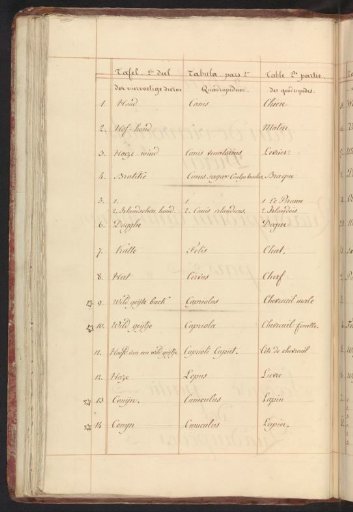 Tafel 2e deel Tabula pars 2a Table 2e partie
der viervoetige dieren Quadrupedum des quadrupedes.
1. Hond Canis Chien
2. Hof-hond Matin
3. Haze-wind Canis Levrier
4. Brakhond Canis sagax Braque
5. 1. 1. 1 Le Danois
2 Islandschen hond 2. Canis islandicus 2. Islandois
6. Dogghe Dogue
7. Katte Felis Chat,
8. Hert Cervus Cherf
9. Wild geijte bock Capreolus Chevreuil male
10. Wild geijte Capreola Chevreuil femelle.
11. Hoft van een wild geijtje Capreoli Caput. Tête de chevreuil
12. Haze Lepus Lievre
13 Conijn. Cuniculus Lapin
14 Conijn Cuniculus Lapin.